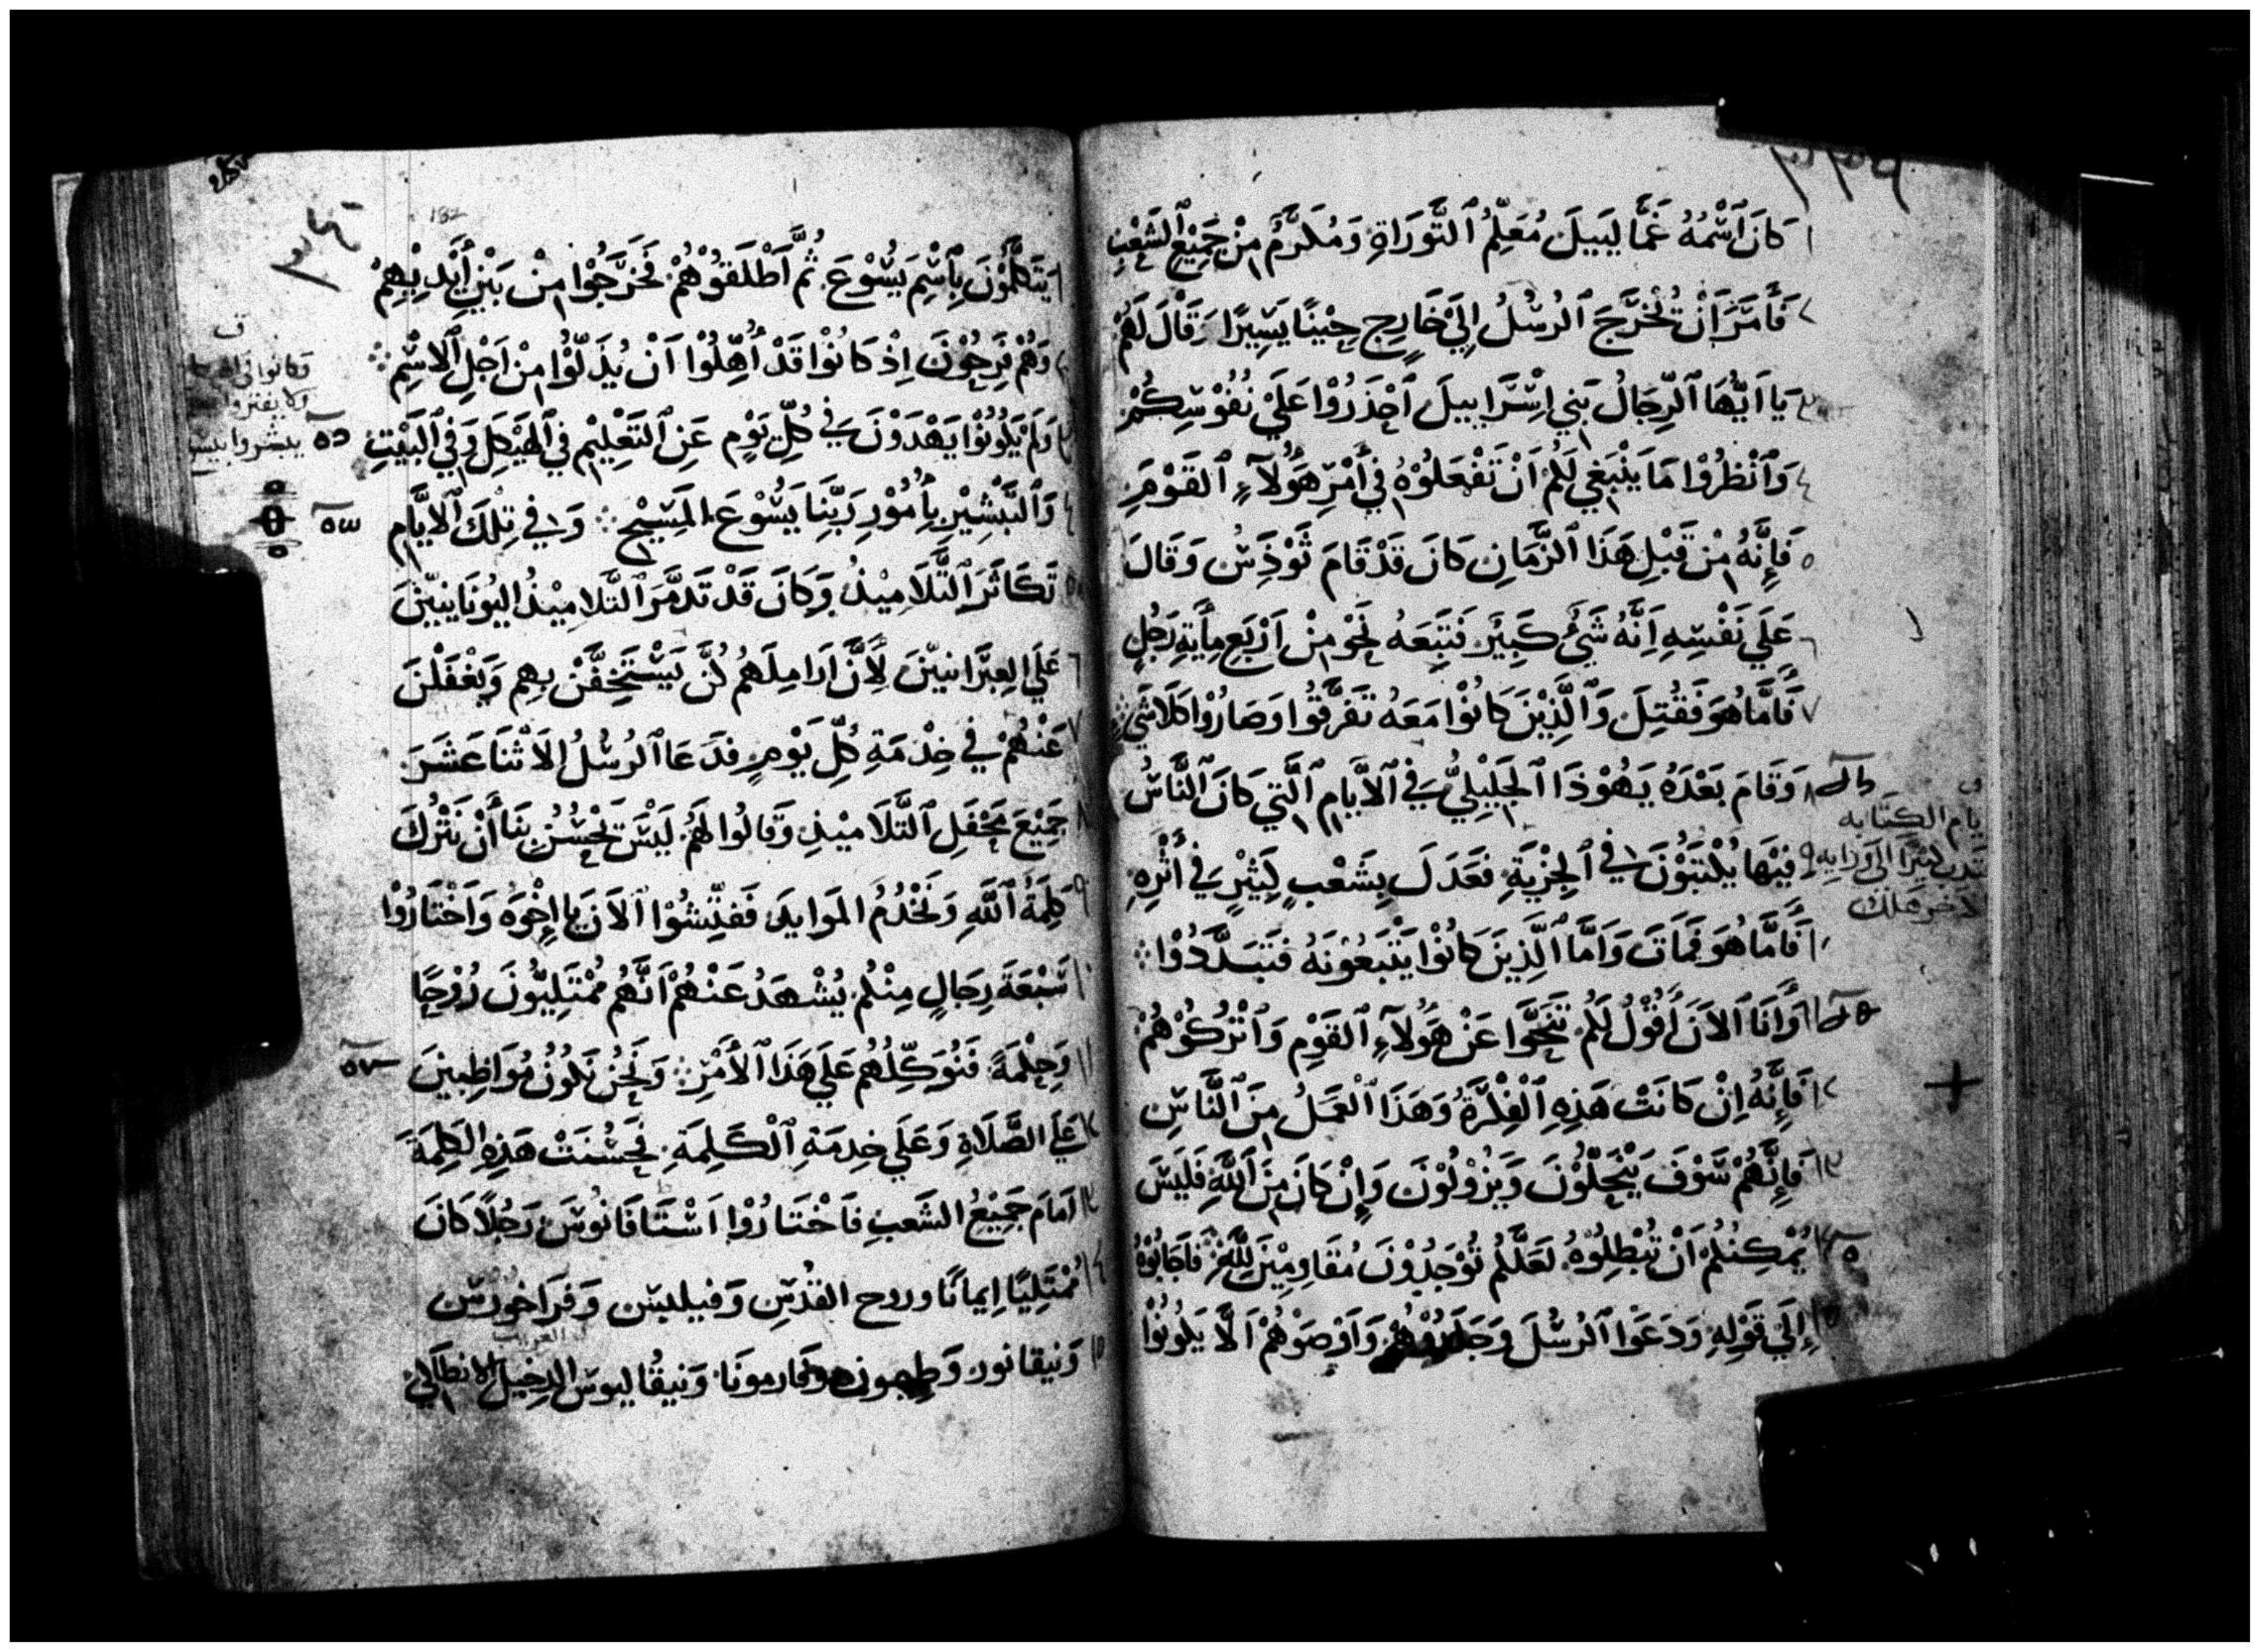 كَانَ ٱسْمُهُ غَمَّا لَيِيلَ مُعَلِّمُ ٱلتَّوْرَاةِ وَمُكَرَّمُ مِنْ جَمِيْعِ ٱلشَّعْبِ
فَأَمَرَ أَنْ تُخْرَجَ ٱلرُسُلُ إِلَيْ خَارِجٍ حِيْنًا يَسِيرًا وَقَالَ لَهُمْ
يَا أَيُّهَا ٱلرِّجَالُ بَنِي إِسْرَاييلَ ٱحْذَرُوْا عَلَيْ نُفُوْسِكُمْ
وَٱنْظُرُوْا مَا يَنْبَغِي لَكُمْ أَنْ تَفْعَلُوْهُ فِي أَمْرِ هَؤُلآءِ ٱلقَوْمِ
فَإِنَّهُ مِنْ قَبْلِ هَذَا ٱلزَّمَانِ كَانَ قَدْ قَامَ ثَوْذَسُ وَقَالَ
عَلَي نَفْسِهِ أَنَّهُ شَيْءُ كَبِيْرَ فَتَبِعَهُ نَحْوُ مِنْ أَرْبَعِ مِأَيَةِ رَجُلٍ
فَأَمَّا هُوَ فَقُتِلَ وَٱلَّذِيْنَ كَانُوْا مَعَهُ تَفَرَّقُوْا وَصَارُوْا كَلَاشَيْ
وَقَامَ بَعْدَهُ يَهُوْذَا ٱلجَلِيْلِيُّ فِي ٱلأَيَّامِ ٱلَّتِي كَانَ ٱلنَّاسُ
فِيْهَا يُكْتَبُوْنَ فِي ٱلجِزْيَةِ فَعَدَلَ بِشَعْبٍ كَثِيْرٍ فِي أَثْرِهِ
فَأَمَّا هُوَ فَمَاتَ وَأَمَّا ٱلَّذِينَ كَانُوْا يَتْبَعُوْنَهُ فَتَبَدَّدُوْا
وَأَنَا ٱلآنَ أَقُوْلُ لَكُمْ تَنَحَّوْا عَنْ هَؤُلآءِ ٱلقَوْمِ وَٱتْرُكُوْهُمْ
فَإِنَّهُ إِنْ كَانَتْ هَذِهِ ٱلْفِكْرَةُ وَهَذَا ٱلْعَمَلُ مِنَ ٱلنَّاسِ
فَإِنَّهُمْ سَوْفَ يَنْحَلُّوْنَ وَيَزُوْلُوْنَ وَإِنْ كَانَ مِنَ ٱللَّهِ فَلَيْسَ
يُمْكِنُكُمْ أَنْ تُبْطِلُوْهُ لَعَلَّكُمْ تُوْجَدُوْنَ مُقَاوِمِيْنَ لِلَّهِ فَأَجَابُوْهُ
إِلَيْ قَوْلِهِ وَدَعَوْا ٱلرُسُلَ وَجَلَدُوْهُمْ وَأَوْصَوْهُمْ أَلَّا يَكُونُوْا
يام الكتابه
لاخر هلك
يَتَكَلَّمُوْنَ بِٱسْمِ يَسُوْعَ ثُمَّ أَطْلَقُوْهُمْ فَخَرَجُوْا مِنْ بَيْنِ أَيْدِيْهِمْ
وَهُمْ فَرِحُوْنَ إِذْ كَانُوْا قَدْ أُهِّلُوْا أَنْ يُذَلُّوْا مِنْ أَجْلِ ٱلاسْمِ
وَلَمْ يَكُوْنُوْا يَهْدَوْنَ فِي كُلِّ يَوْمٍ عَنِ ٱلتَعْلِيْمِ فِي ٱلهَيْكَلِ وَفِي ٱلبَيْتِ
وَٱلتَّبْشِيْرِ بِأُمُوْرِ رَبِّنَا يَسُوْعَ ٱلمَسِيْحِ وَفِي تِلْكَ ٱلأَيَّامِ
تَكَاثَرَ ٱلتَّلَامِيْذُ وَكَانَ قَدْ تَدَمَّرَ ٱلتَّلامِيْذُ اليُونَانِيِّيْنَ
عَلَي العِبْرَانيِّيْنَ لِأَنَّ أَرَامِلَهُمْ كُنَّ يَسْتَخِفَّنْ بِهِم وَيَغْفَلْنَ
عَنْهُمْ فِي خِدْمَةِ كُلِّ يَوْمٍ فَدَعَا ٱلرُسُلُ الاثْنَا عَشَرَ
جَمِيْعَ مَحْفَلِ ٱلتَّلَامِيْذِ وَقَالُوا لَهُمْ لَيْسَ يَحْسُنُ بِنَا أَنْ نَتْرُكَ
كَلِمَةَ ٱللَّهِ وَنَخْدُمُ المَوَايِدَ فَفَتِّشُوْا ٱلآنَ يَا إِخْوَه وَاخْتَارُوْا
سَبْعَةَ رِجَالٍ مِنْكُم يُشْهَدُ عَنْهُمْ أَنَّهُم مُمْتَلِيُّونَ رُوْحًا
وَحِكْمَةً فَنُوَكِّلُهُم عَلَي هَذَا ٱلأَمْرِ وَنَحْنُ نَكُوْنُ مُوَاظِبِينَ
عَلَي الصَّلَاةِ وَعَلَي خِدمَةِ ٱلْكَلِمَةِ فَحَسُنَتْ هَذِهِ الكَلِمَةَ
أمَامَ جَمِيْعُ الشَعبِ فَاخْتَارُوْا اسْتَافَانُوسَ رَجُلًا كَانَ
مُمْتَلِيًا إِيمانًا وروح القُدُسِ وَفيلبس وَفرَاخورُس
وَنيقانور وَطيمون وَفَارمونَا وَنيقُاليوس الدخيل الانطاكي
وكانوا في
يبشروا بيسو